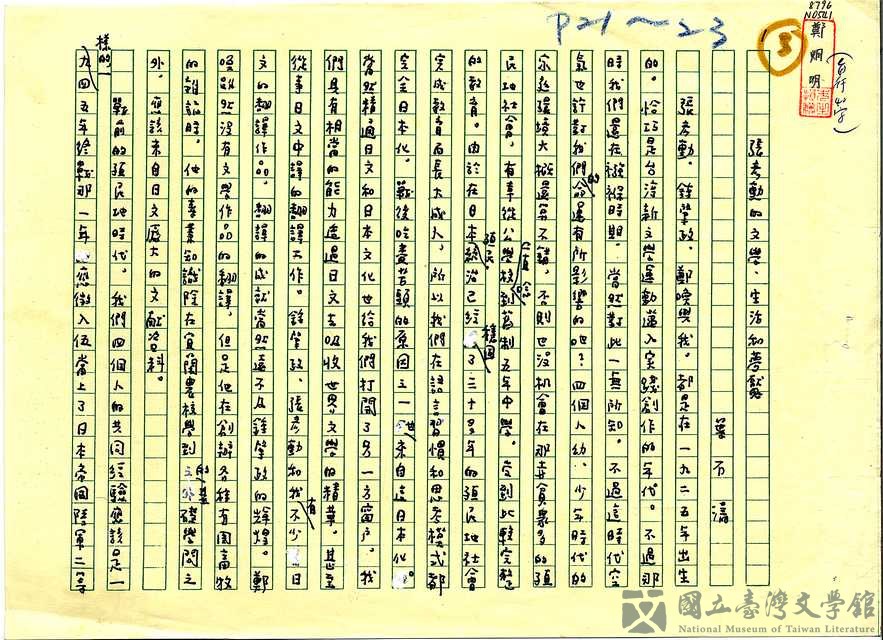 8796
N05411
鄭烱明
(自行𠮟字)
P21～23
5
張彥勳的文學、生活和夢魘
葉石濤
張彥勳、鍾肇政、鄭煥與我,都是在一九二五年出生
的。恰巧是台灣新文學運動邁入實踐創作的年代。不過那
時我們還在襁褓時期。當然對此一無所知。不過這時代空
氣也許對我們的命運有所影響的吧?四個人幼、少年時代的
家庭環境大概還算不錯,否則也沒机會在那赤貧眾多的殖
民地社會,有幸從公學校一直念到舊制五年中學。受到比較完整
的教育。由於在日本殖民統治已經穩固了二十多年的殖民地社會
完成教育而長大成人,所以我們在語言習慣和思考模式都
完全日本化。戰後吃盡苦頭的原因之一也來自這日本化。
當然精通日文和日本文化也給我們打開了另一方窗戶。我
們具有相當的能力透過日文去吸收世界文學的精華。甚至
從事日文中譯的翻譯工作。鍾肇政、張彥勳和我有不少日
文的翻譯作品。翻譯的成就當然遠不及鍾肇政的輝煌。鄭
煥雖然沒有文學作品的翻譯,但是他在創辦各種有關畜牧
的雜誌時,他的專業知識除在宜蘭農校學到的基礎學問之
外,應該來自日文龐大的文獻資料。
戰前的殖民地時代,我們四個人的共同經驗應該是一樣的。一
九四五年終戰那一年應徵入伍當上了日本帝國陸軍二等
國立臺灣文學館
National Museum of Taiwan Literature